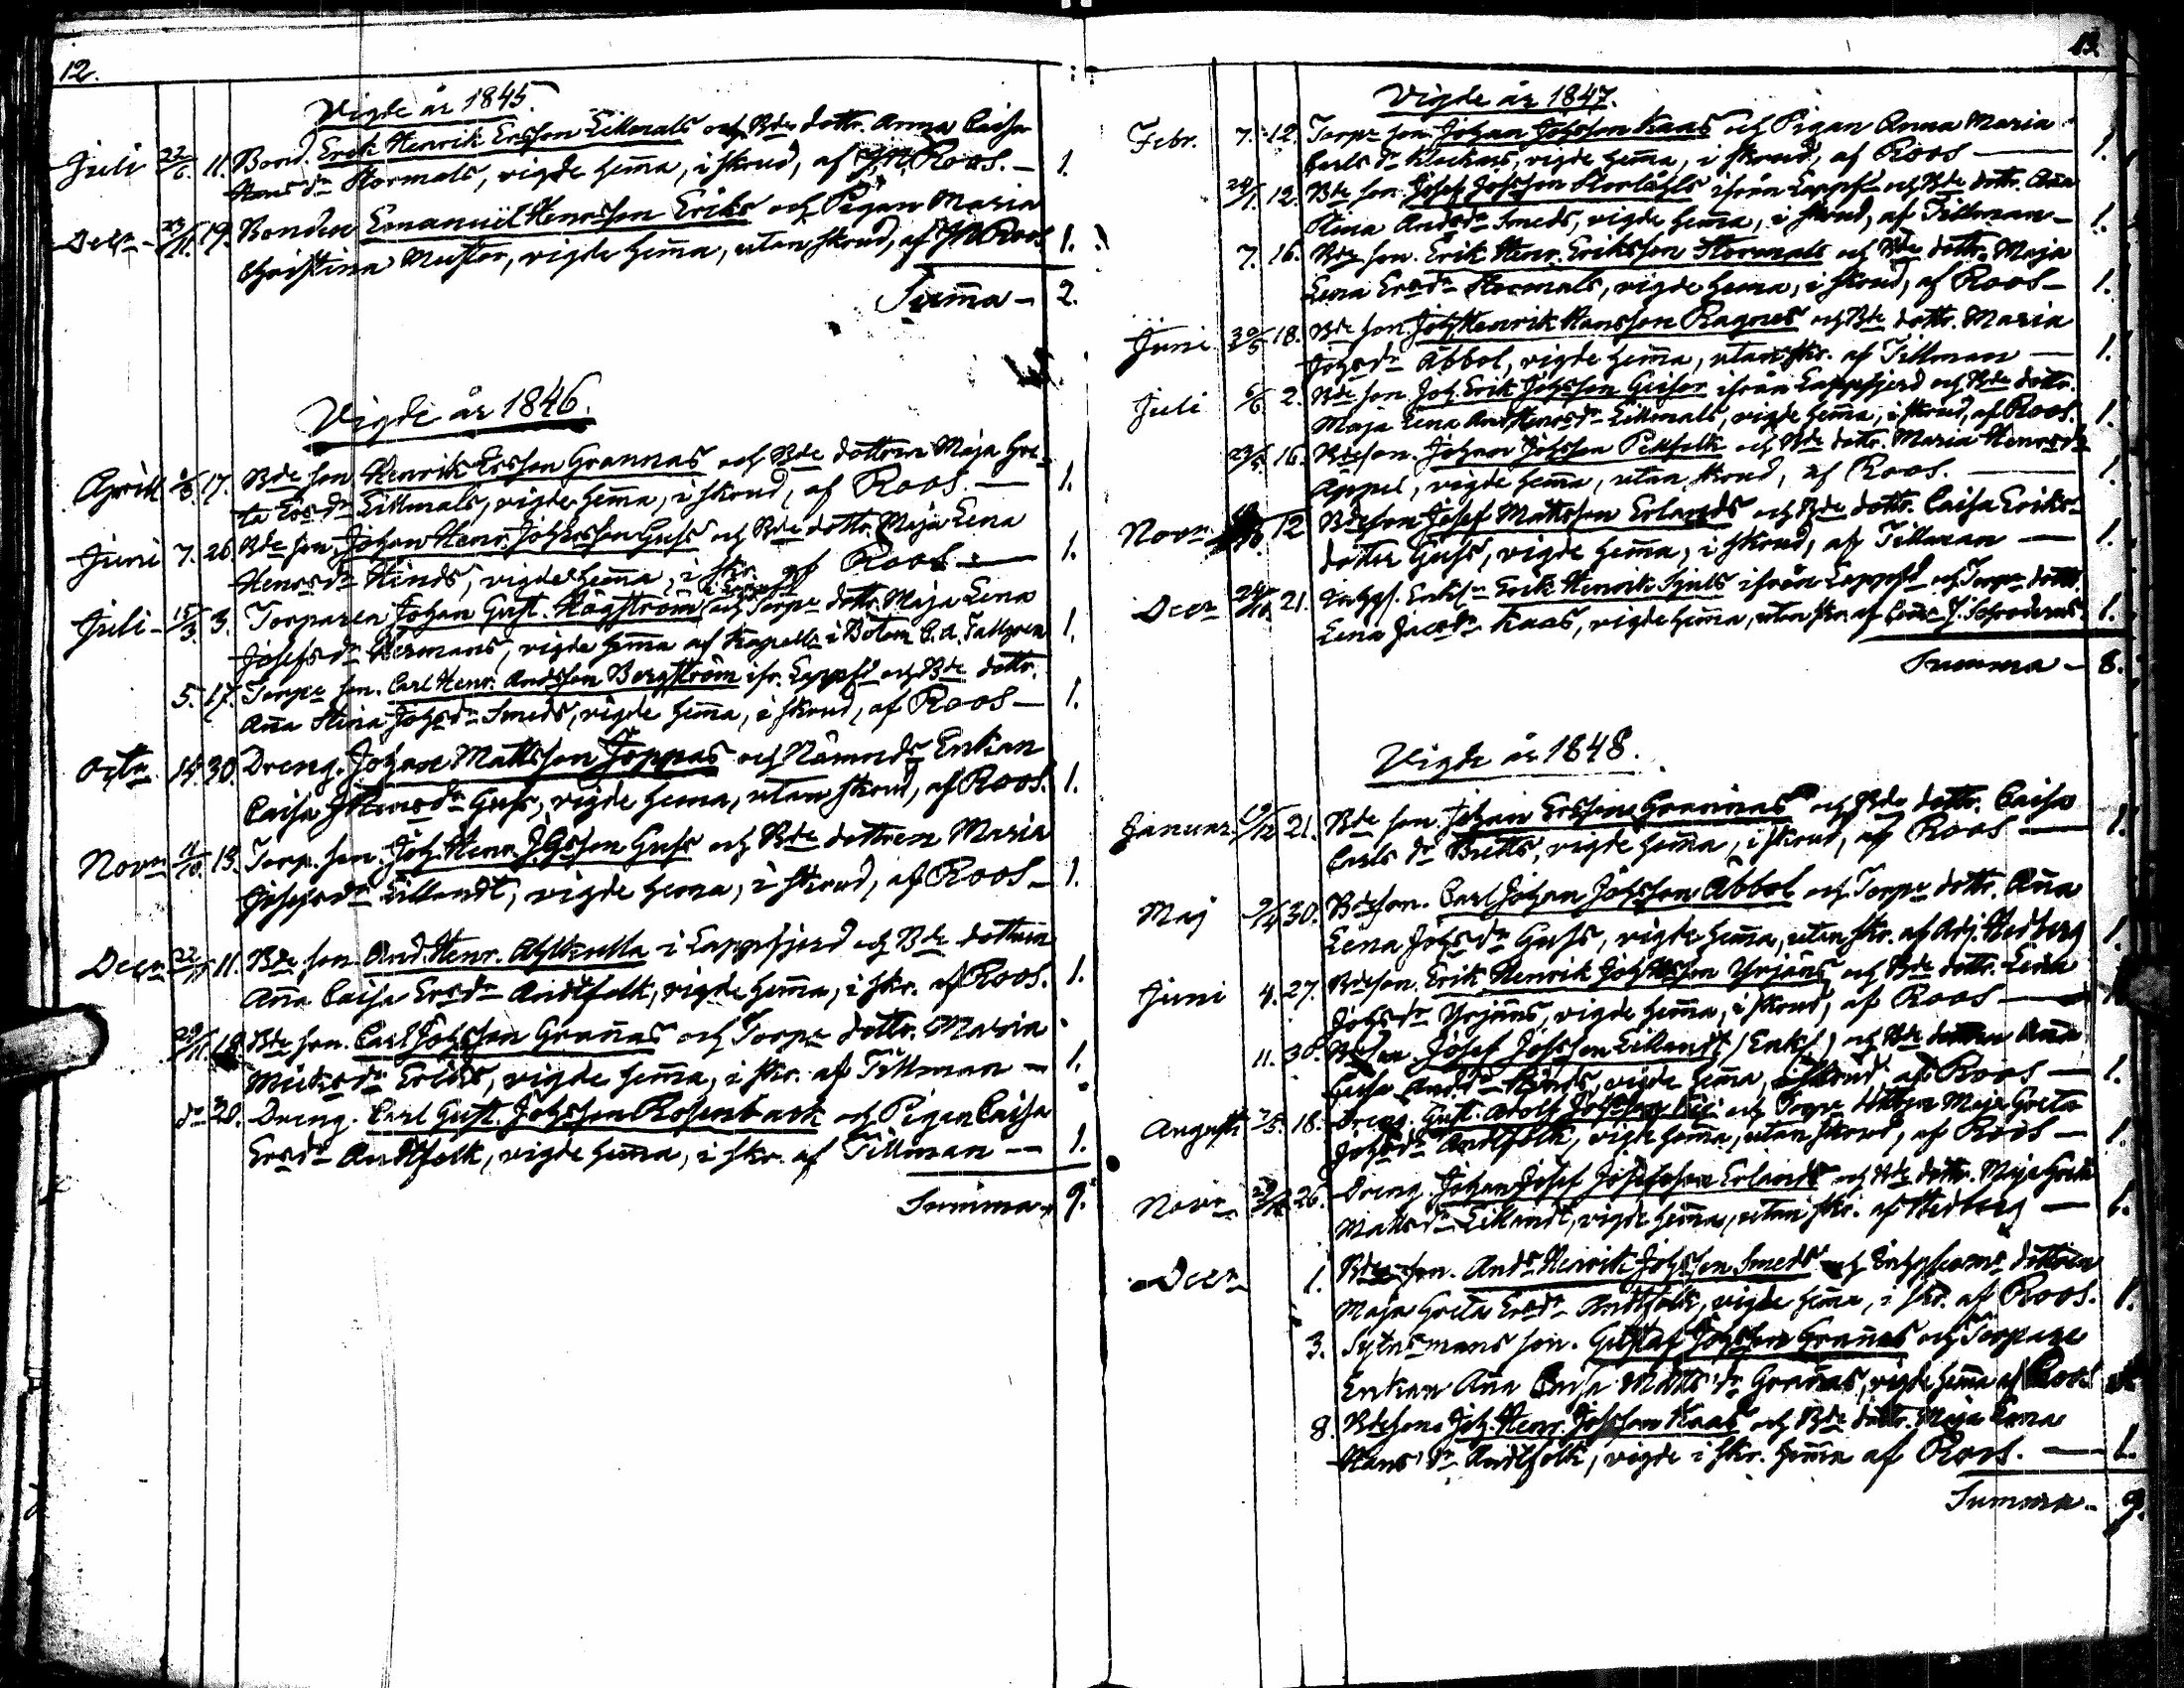 12.
Vigde år 1845.
Juli 22/6 11. Bond. Erik Henrik Ersson Lillmals och Bde dottr. Anna Caisa
Hans dr Stormals, vigde hema, i skrud, af J.N. Roos. — 1.
Decr 23/11 19. Bonden Emanuël Henrsson Eriks och Pigan Maria
Christina Muster, vigde hema, utan skrud, af JN Roos 1.
Suma — 2.
Vigde år 1846.
Aprill 17. Bde son Henrik Ersson Grannas och Bde dottren Maja Gre-
ta Ersdr Lillmals, vigde hema, i skrud, af Roos. — 1.
Juni 7. 26. Bde son Johan Henr. Guss och Bde dottr. Maja Lena
Henrsdr Hinds, vigde hema, i skr. af Roos — 1.
Juli 15/3 3. Torparen Johan Gust. Högström och Torpr dottr. Maja Lena
Josefsdr Hermans, vigde hema af Kapell. i Bötom C.A. Tallgren 1.
5. 17. Torpr son. Carl Henr. Andsson Bergström ifr. Lappfd och Bde dottr.
Aña Stina Johsdr Smeds, vigde hema, i skrud, af Roos — 1.
Octr 14. 30. Dreng. Johan Mattsson Joppas och Nämnds Enkan
Caisa Guss, vigde hema, utan skrud, af Roos. 1.
Novr 11/10. 13. Torp. son. Joh. Henr. Guss och Bde dottren Maria
Josefsdr Lillandt, vigde hema, i skrud, af Roos — 1.
Decr 22/11 11. Bde son And. Henr. i Lappfjerd och Bde dottren
Aña Caisa Ersdr Andtfolk, vigde hema, i skr. af Roos. 1.
29/11. 18. Bde son. Carl Johsson Grañas och Torpr dottr. Maria
Micksdr Eriks, vigde hema, i skr. af Tillman — 1.
dr 28. Dreng. Carl Gust. Johsson Rosenback och Pigan Caisa
Ersdr Andtfolk, vigde hema, i skr. af Tillman — 1.
Summa 9.
13.
Vigde år 1847.
Febr. 7. 12. Torpr son Johan Johsson Kaas och Pigan Anna Maria
Carls dr Klockars, vigde hema, i skrud, af Roos — 1.
24/1. 12. Bde son. Josef Johsson Storlåhls ifrån Lappfd och Bde dottr. Aña
Stina Andsdr Smeds, vigde hema, i skrud, af Tillman — 1.
7. 16. Bde son. Erik Henr. Eriksson Stormals och Bde dottr. Maja
Lena Ersdr Stormals, vigde hema, i skrud, af Roos — 1.
Juni 30/5 18. Bde son. Joh Henrik Hansson Ragnes och Bde dottr. Maria
Johsdr Åbbol, vigde hema, utan skr. af Tillman — 1.
Juli 6/6 2. Bde son Joh. Erik Johsson Geisor ifrån Lappfjerd och Bde dottr.
Maja Lena And Henrsdr Lillmals, vigde hema, i skrud, af Roos. 1.
16. Bdeson. Johan Johsson Pellfolk och Bde dottr. Maria Henrsdr
Appel, vigde hema, utan skrud, af Roos. — 1.
Novr 12 Bdeson Josef Mattsson Erlands och Bde dottr. Caisa Eriks-
dotter Guss, vigde hema, i skrud, af Tillman — 1.
Decr 24/10 21. Inhys. Enkl. Erik Henrik ifrån Lappfd och Torpr dottr.
Lena Jacsdr Kaas, vigde hema, utan skr. af 1.
Summa — 8.
Vigde år 1848.
Januar. 21. Bde son. Johan Ersson Grannas och Bde dottr. Caisa
Carls dr Butts, vigde hema, i skrud, af Roos — 1.
Maj 9/4 30. Bdeson. Carl Johan Johsson Åbbol och Torpr dottr. Aña
Lena Johsdr Guss, vigde hema, utan skr. af Adj. Hedberg 1.
Juni 4. 27. Bdeson. Erik Henrik Yrjäns och Bde dottr. Lena
Johsdr Yrjäns, vigde hema, i skrud, af Roos —
11. 30. Josef Johsson Lillandt (Enkl) och Bde dottren Aña
Caisa Andsdr Hinds, vigde hema, i skrud af Roos — 1.
Augusti 18. Dreng. Gust. Adolf och Torpr dottren Maja Greta
Johsdr Andtfolk, vigde hema, utan skrud, af Roos — 1.
Novr 26. Dreng. Johan Josef Josefsson Erlands och Bde dottr. Maja Greta
Mattsdr Lillandt, vigde hema, utan skr. af Hedberg — 1.
Decr 1. Bde son. Ands Henrik Johsson Smeds och dottren
Maja Greta Ersdr Andtfolk, vigde hema, i skr. af Roos. 1.
3. Sytnsmans son. Gustaf Johsson Grañas och Torpare
Enkan Aña Caisa Matts dr Grañas, vigde hema af Roos
8. Bdeson. Joh. Henr. Johsson Kaas och Bde dottr. Maja Lena
Hans dr Andtfolk, vigde i skr. hema af Roos. — 1.
Summa — 9.